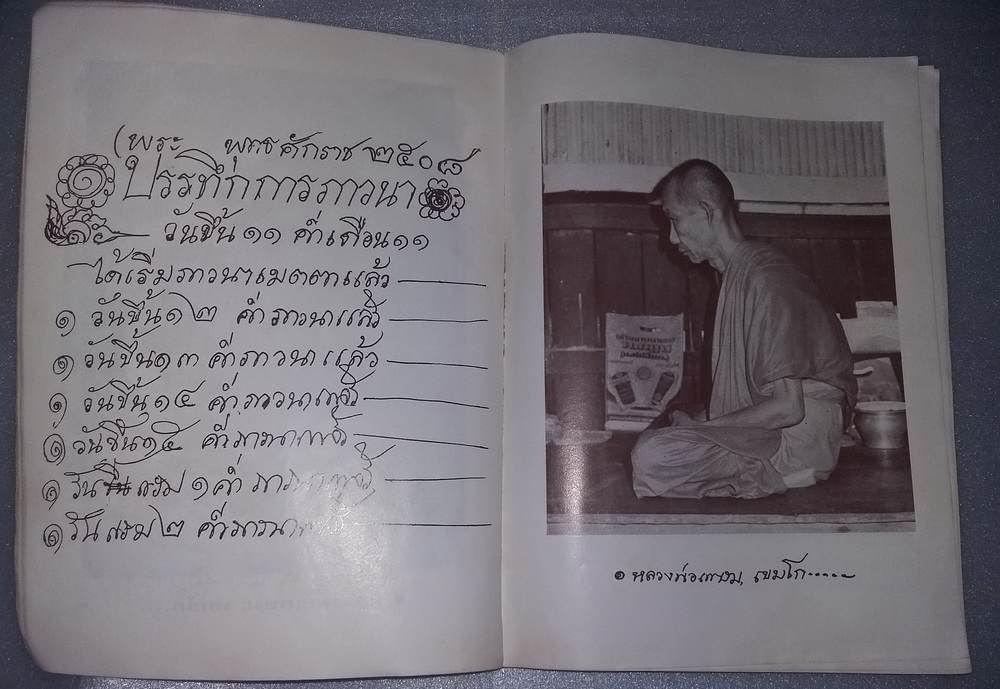 (พระ พุทธศักราช ๒๕๐๘
บรรทึกการภาวนา
วันขึ้น ๑๑ ค่ำเดือน ๑๑
ได้เริ่มภาวนาเมตตาแล้ว
๑ วันขึ้น ๑๒ ค่ำ ภาวนาแล้ว
๑ วันขึ้น ๑๓ ค่ำ ภาวนาแล้ว
๑ วันขึ้น ๑๔ ค่ำ ภาวนาแล้ว
๑ วันขึ้น ๑๕ ค่ำ ภาวนาแล้ว
๑ วัน แรม ๑ ค่ำ ภาวนาแล้ว
๑ วัน แรม ๒ ค่ำ ภาวนา
๑ หลวงพ่อเกษม, เขมโก.....